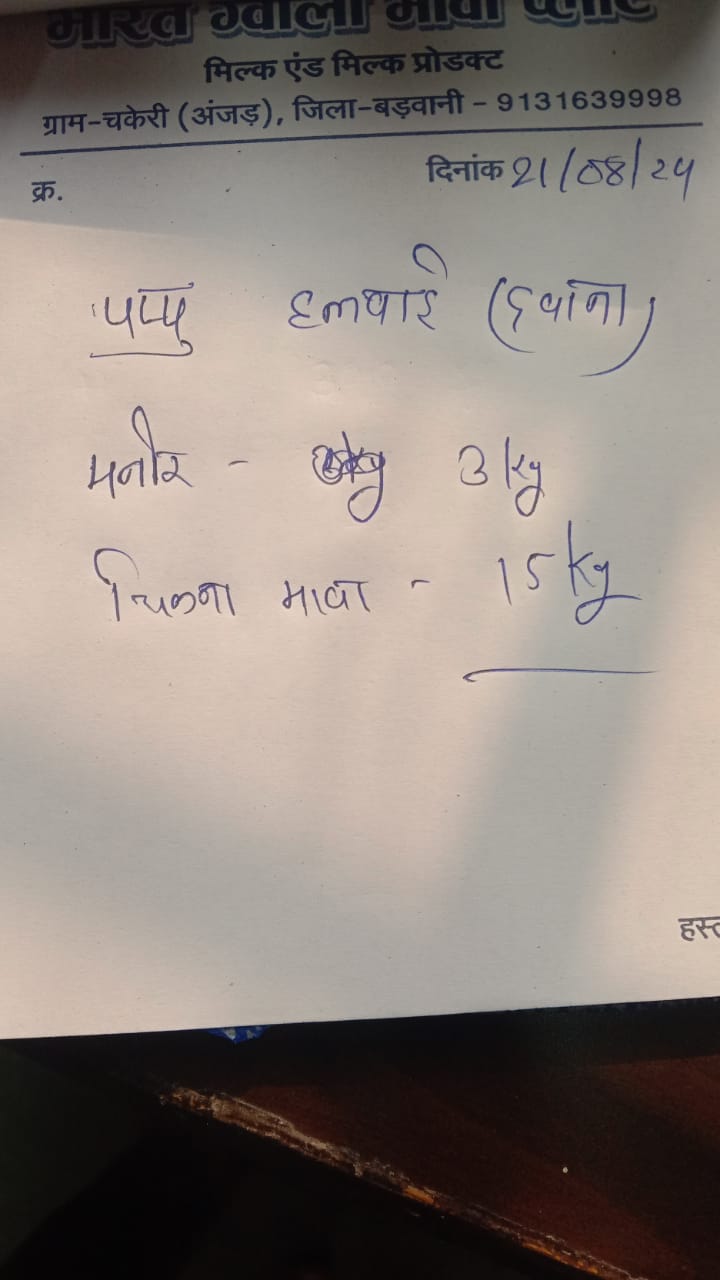 भारत ग्वाला मावा प्लांट
मिल्क एंड मिल्क प्रोडक्ट
ग्राम-चकेरी (अंजड़), जिला-बड़वानी - 9131639998
क्र. दिनांक 21/08/24
पप्पु हलवाई (दवाना)
मनोर - 3 kg
चिकना मावा - 15 kg